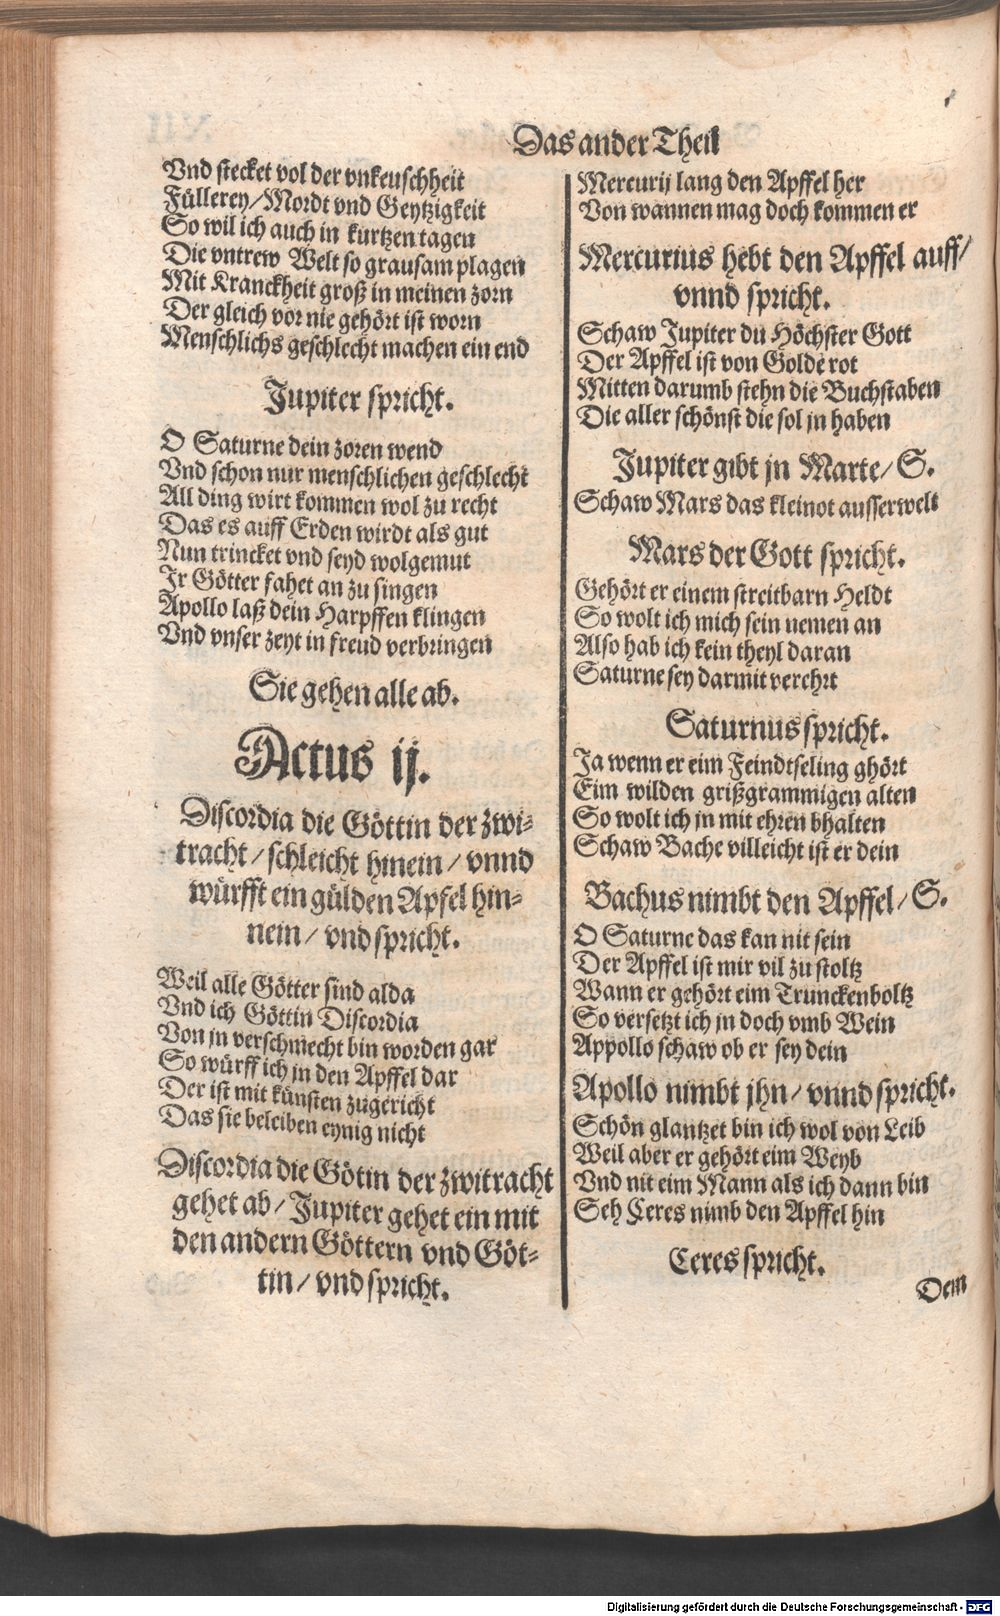 Das ander Theil
Vnd stecket vol der vnkeuschheit
Füllerey/Mordt vnd Geytzigkeit
So wil ich auch in kurtzen tagen
Die vntrew Welt so grausam plagen
Mit Kranckheit groß in meinen zorn
Der gleich vor nie gehört ist worn
Menschlichs geschlecht machen ein end
Jupiter spricht.
O Saturne dein zoren wend
Vnd schon nur menschlichen geschlecht
All ding wirt kommen wol zu recht
Das es auff Erden wirdt als gut
Nun trincket vnd seyd wolgemut
Ir Götter fahet an zu singen
Apollo laß dein Harpffen klingen
Vnd vnser zeyt in freud verbringen
Sie gehen alle ab.
Actus ij.
Discordia die Göttin der zwi-
tracht/schleicht hinein/vnnd
würfft ein gülden Apfel hin-
nein/ vnd spricht.
Weil alle Götter sind alda
Vnd ich Göttin Discordia
Von jn verschmecht bin worden gar
So würff ich jn den Apffel dar
Der ist mit künsten zugericht
Das sie beleiben eynig nicht
Discordia die Götin der zwitracht
gehet ab/ Jupiter gehet ein mit
den andern Göttern vnd Göt-
tin/vnd spricht.
Mercurij lang den Apffel her
Von wannen mag doch kommen er
Mercurius hebt den Apffel auff/
vnnd spricht.
Schaw Jupiter du Höchster Gott
Der Apffel ist von Golde rot
Mitten darumb stehn die Buchstaben
Die aller schönst die sol jn haben
Jupiter gibt jn Marte/ S.
Schaw Mars das kleinot ausserwelt
Mars der Gott spricht.
Gehört er einem streitbarn Heldt
So wolt ich mich sein nemen an
Also hab ich kein theyl daran
Saturne sey darmit verehrt
Saturnus spricht.
Ja wenn er eim Feindtseling ghört
Eim wilden grißgrammigen alten
So wolt ich jn mit ehren bhalten
Schaw Bache villeicht ist er dein
Bachus nimbt den Apffel/ S.
O Saturne das kan nit sein
Der Apffel ist mir vil zu stoltz
Wann er gehört eim Trunckenboltz
So versetzt ich jn doch vmb Wein
Appollo schaw ob er sey dein
Apollo nimbt jhn/ vnnd spricht.
Schön glantzet bin ich wol von Leib
Weil aber er gehört eim Weyb
Vnd nit eim Mann als ich dann bin
Seh Ceres nimb den Apffel hin
Ceres spricht.
Dem
Digitalisierung gefördert durch die Deutsche Forschungsgemeinschaft - DFG